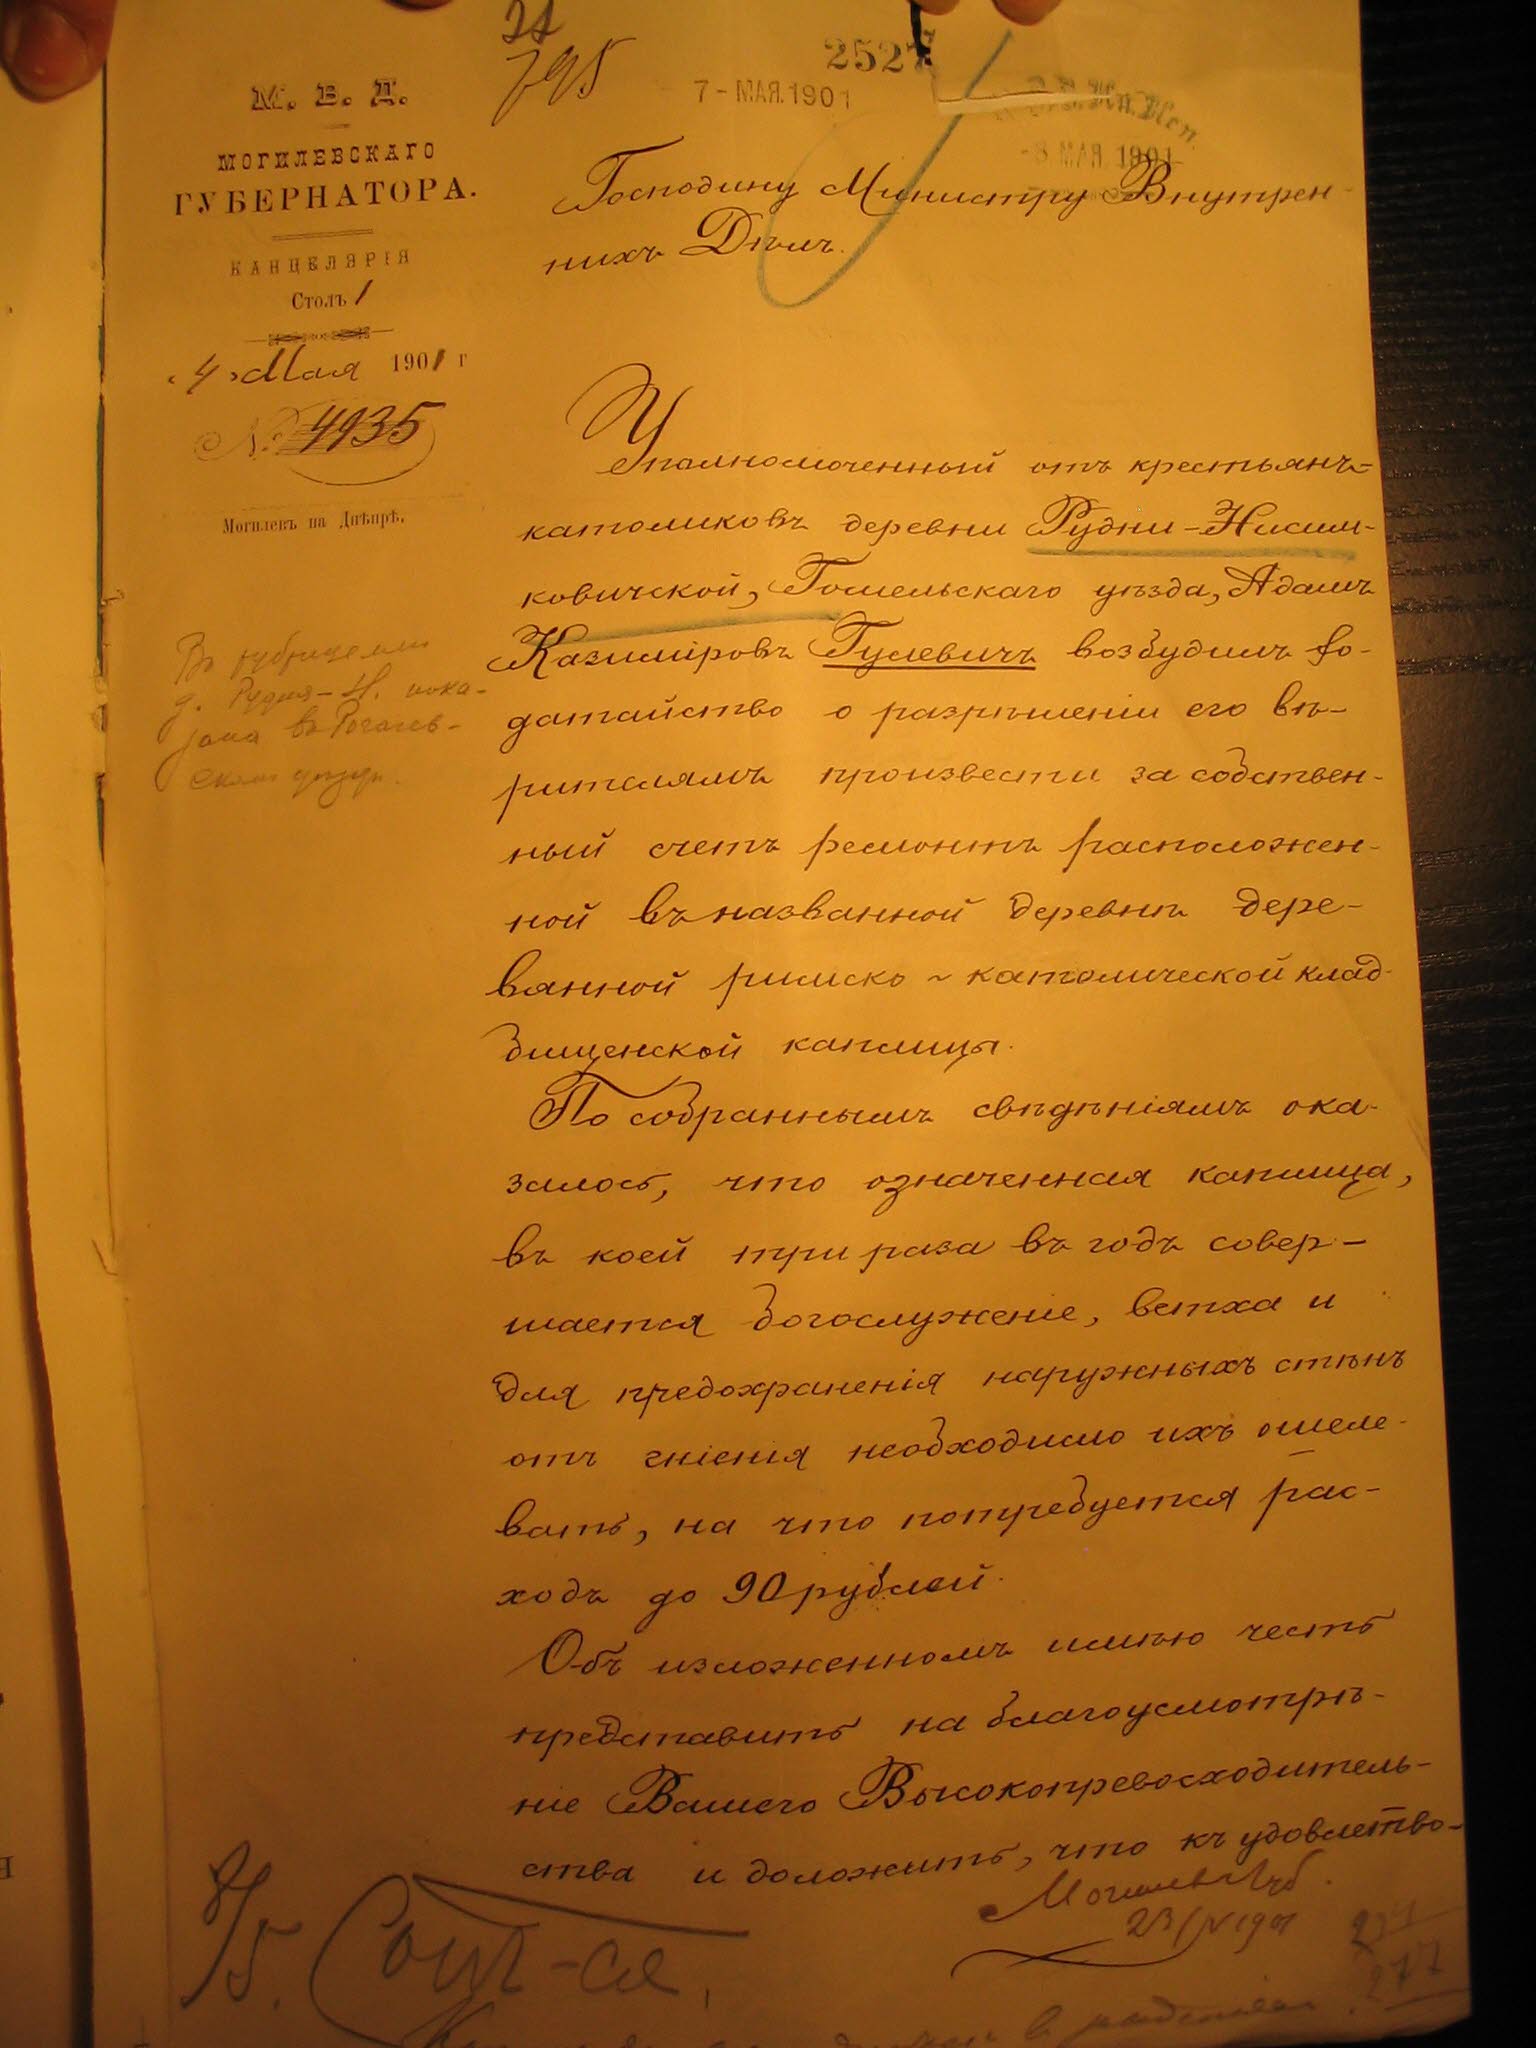 21
795
2527
7-МАЯ.1901
-8 МАЯ 1901
М. В. Д.
МОГИЛЕВСКАГО
ГУБЕРНАТОРА.
КАНЦЕЛЯРІЯ
Столъ 1
"4" Мая 1901 г
№ 4935
Могилевъ на Днѣпрѣ.
Господину Министру Внутрен-
нихъ Дѣлъ.
Уполномоченный отъ крестьянъ-
католиковъ деревни Рудни-Нисим-
ковичской, Гомельскаго уѣзда, Адамъ
Казиміровъ Гулевичъ возбудилъ хо-
датайство о разрѣшеніи его вѣ-
рителямъ произвести за собствен-
ный счетъ ремонтъ расположен-
ной въ названной деревнѣ дере-
вянной римско-католической клад-
бищенской каплицы.
По собраннымъ свѣдѣніямъ ока-
залось, что означенная каплица,
въ коей три раза въ годъ совер-
шается богослуженіе, ветха и
для предохраненія наружныхъ стѣнъ
отъ гніенія необходимо ихъ ошеле-
вать, на что потребуется рас-
ходъ до 90 рублей.
Объ изложенномъ имѣю честь
представить на благоусмотрѣ-
ніе Вашего Высокопревосходитель-
ства и доложить, что къ удовлетво-
д. Рудня-Н. пока-
зана въ Рогачев-
скомъ уѣздѣ.
8/5.
Могилев. губ.
23/IV 1901
277